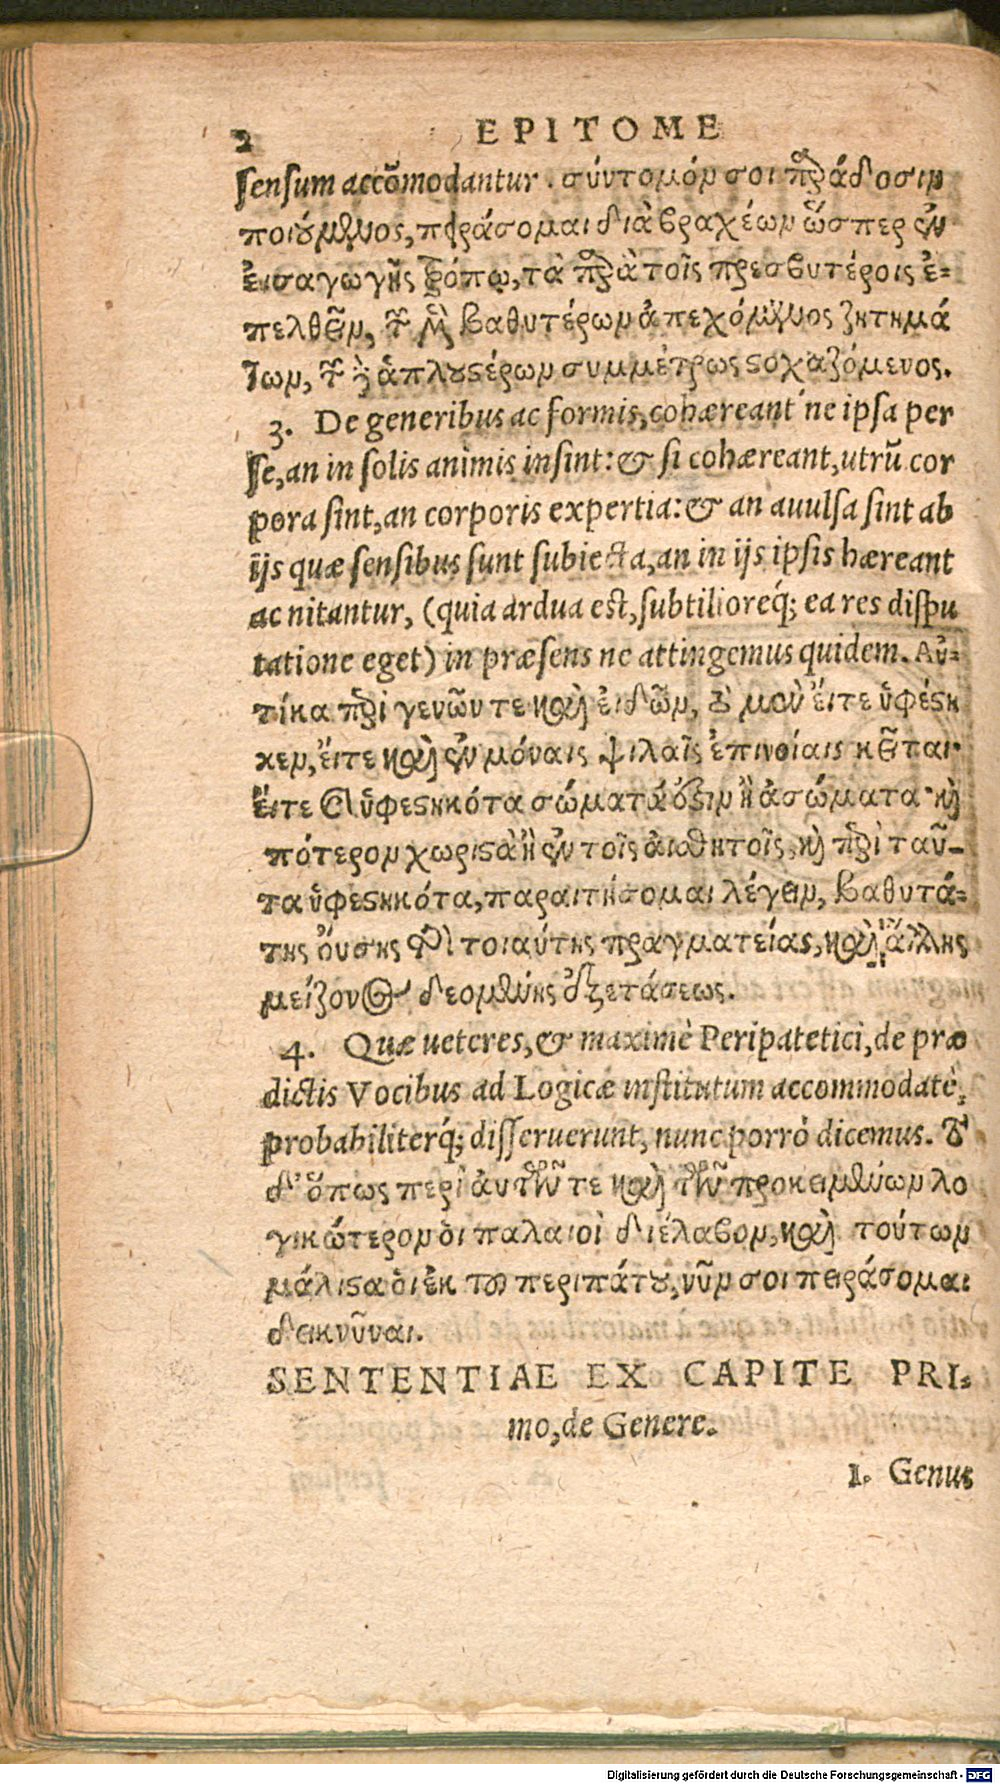 2 EPITOME
sensum accõmodantur. σύντομόν σοι παράδοσιν
ποιούμενος, πειράσομαι διὰ βραχέων ὥσπερ ἐν
εἰσαγωγῆς τρόπῳ, τὰ παρὰ τοῖς πρεσβυτέροις ἐ-
πελθεῖν, τῶν μὲν βαθυτέρων ἀπεχόμενος ζητημά
των, τῶν δὲ ἁπλουστέρων συμμέτρως στοχαζόμενος.
3. De generibus ac formis, cohæreant ne ipsa per
se, an in solis animis insint: & si cohæreant, utrũ cor
pora sint, an corporis expertia: & an auulsa sint ab
ijs quæ sensibus sunt subiecta, an in ijs ipsis hæreant
ac nitantur, (quia ardua est, subtilioreq́; ea res dispu
tatione eget) in præsens ne attingemus quidem. Αὐ-
τίκα περὶ γενῶν τε καὶ εἰδῶν, τὸ μὲν εἴτε ὑφέστη
κεν, εἴτε καὶ ἐν μόναις ψιλαῖς ἐπινοίαις κεῖται·
εἴτε καὶ ὑφεστηκότα σώματά ἐστιν ἢ ἀσώματα· καὶ
πότερον χωριστὰ ἢ ἐν τοῖς αἰσθητοῖς, καὶ περὶ ταῦ-
τα ὑφεστηκότα, παραιτήσομαι λέγειν, βαθυτά-
της οὔσης τῆς τοιαύτης πραγματείας, καὶ ἄλλης
μείζονος δεομένης ἐξετάσεως.
4. Quæ ueteres, & maximè Peripatetici, de præ
dictis Vocibus ad Logicæ institutum accommodatè,
probabiliterq́; disseruerunt, nunc porrò dicemus. Τὸ
δ' ὅπως περὶ αὐτῶν τε καὶ τῶν προκειμένων λο
γικώτερον οἱ παλαιοὶ διέλαβον, καὶ τούτων
μάλιστα οἱ ἐκ τοῦ περιπάτου, νῦν σοι πειράσομαι
δεικνῦναι.
SENTENTIAE EX CAPITE PRI-
mo, de Genere.
1. Genus
Digitalisierung gefördert durch die Deutsche Forschungsgemeinschaft - DFG